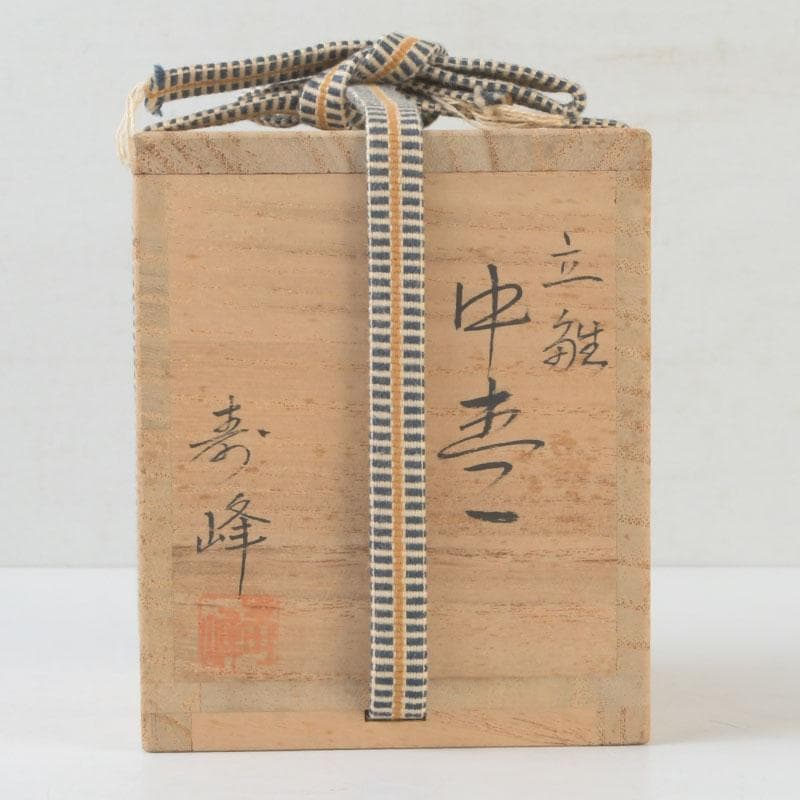 立雛
中棗
寿峰